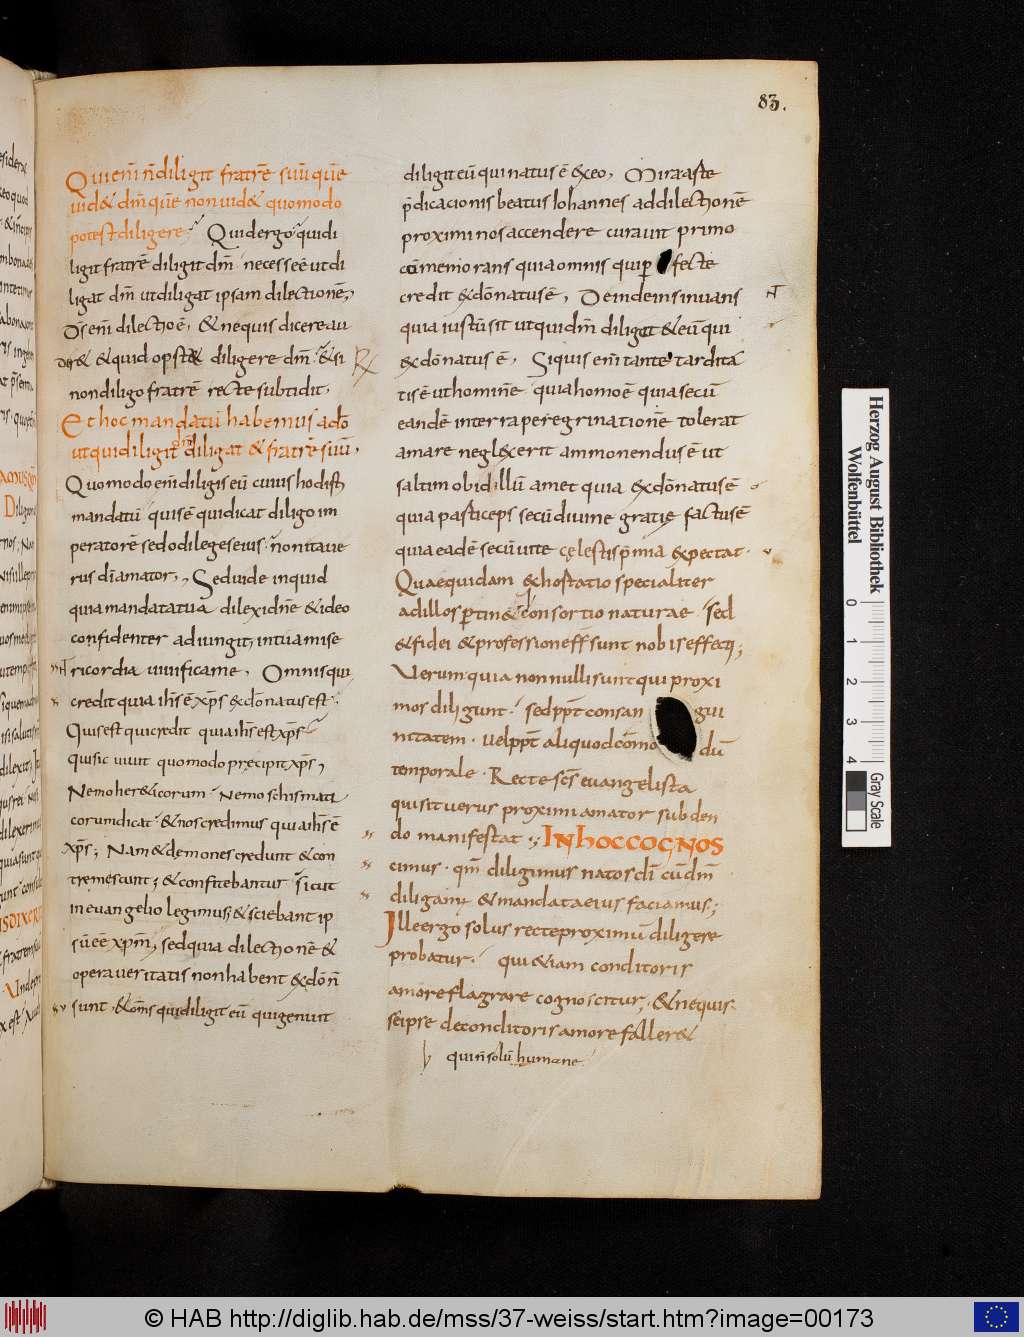 83.
Qui eni͞ n͞ diligit fratre͞ suu͞ que͞
uid& dm͞ que͞ non uid& quomodo
potest diligere Quid ergo qui di
ligit fratre͞ diligit dm͞ necesse e͞ ut di
ligat dm͞ ut diligat ipsam dilectione͞;
Ds eni͞ dilectio e͞, & nequis dicere au
der& & quid opst& diligere dm͞ & si
non diligo fratre͞ recte subdidit.
Et hoc mandatu͞ habemus a do͞
ut qui diligit dm͞ diligat & fratre͞ suu͞.
Quomodo eni͞ diligis eu͞ cuius hodisti
mandatu͞ quis e͞ qui dicat diligo im
peratore͞ sed odi leges eius non ita ue
rus di͞ amator, Sed uide inquid
quia mandata tua dilexi dn͞e & ideo
confidenter adiungit, in tua mise
ricordia uiuifica me. Omnis qui
credit quia ih͞s e͞ xp͞s ex do͞ natus est.
Quis est qui credit quia ih͞s est xp͞s
qui sic uiuit quomodo precipit xp͞s,
Nemo her&icorum Nemo schismati
corum dicat & nos credimus quia ih͞s e͞
xp͞s; Nam & demones credunt & con
tremescunt; & confitebantur sicut
in euangelio legimus; & sciebant ip
su͞ e͞e xp͞m, sed quia dilectione͞ &
opera ueritatis non habent ex do͞ n͞
sunt. & om͞s qui diligit eu͞ qui genuit
diligit eu͞ qui natus e͞ ex eo, Mira aste
p͞dicacionis beatus Iohannes ad dilectione͞
proximi nos accendere curauit primo
co͞memorans quia omnis qui per fecte
credit ex do͞ natus e͞, Deinde insinuans
quia iustu͞ sit ut qui dm͞ diligat & eu͞ qui
ex do͞ natus e͞. Siquis eni͞ tante tardita
tis e͞ ut homine͞ quia homo e͞ quia secu͞
eande͞ in terra peregrinatione͞ tolerat
amare neglexerit ammonendus e͞ ut
saltim ob id illu͞ amet quia ex do͞ natus e͞
quia pasticeps secu͞ diuine gratie factus e͞
quia eade͞ secu͞ uite celestis p͞mia expectat.
Quae quidam exhostatio specialiter
ad illos p͞tin& consortio naturae sed
& fidei & professione ff sunt nobis effecti;
Uerum quia non nulli sunt qui proxi
mos diligunt sed ppt͞ consan gui
nitatem. uel ppt͞ aliquod co͞mo du͞
temporale. Recte sc͞s euangelista
qui sit uerus proximi amator subden
do manifestat; IN HOC COGNOS
cimus. qm͞ diligimus natos di͞ cu͞ dm͞
diligamus & mandata eius faciamus;
Ille ergo solus recte proximu͞ diligere
probatur. qui & iam conditoris
amore flagrare cognoscitur, & nequis
seipse de conditoris amore faller&
qui n͞ solu͞ humane
Herzog August Bibliothek
Wolfenbüttel
0 1 2 3 4
Gray Scale
© HAB http://diglib.hab.de/mss/37-weiss/start.htm?image=00173